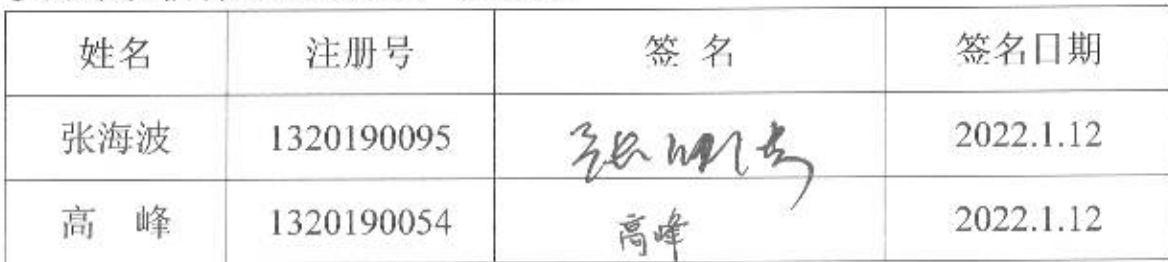 姓名 注册号 签 名 签名日期
张海波 1320190095 张 2022.1.12
高 峰 1320190054 高峰 2022.1.12